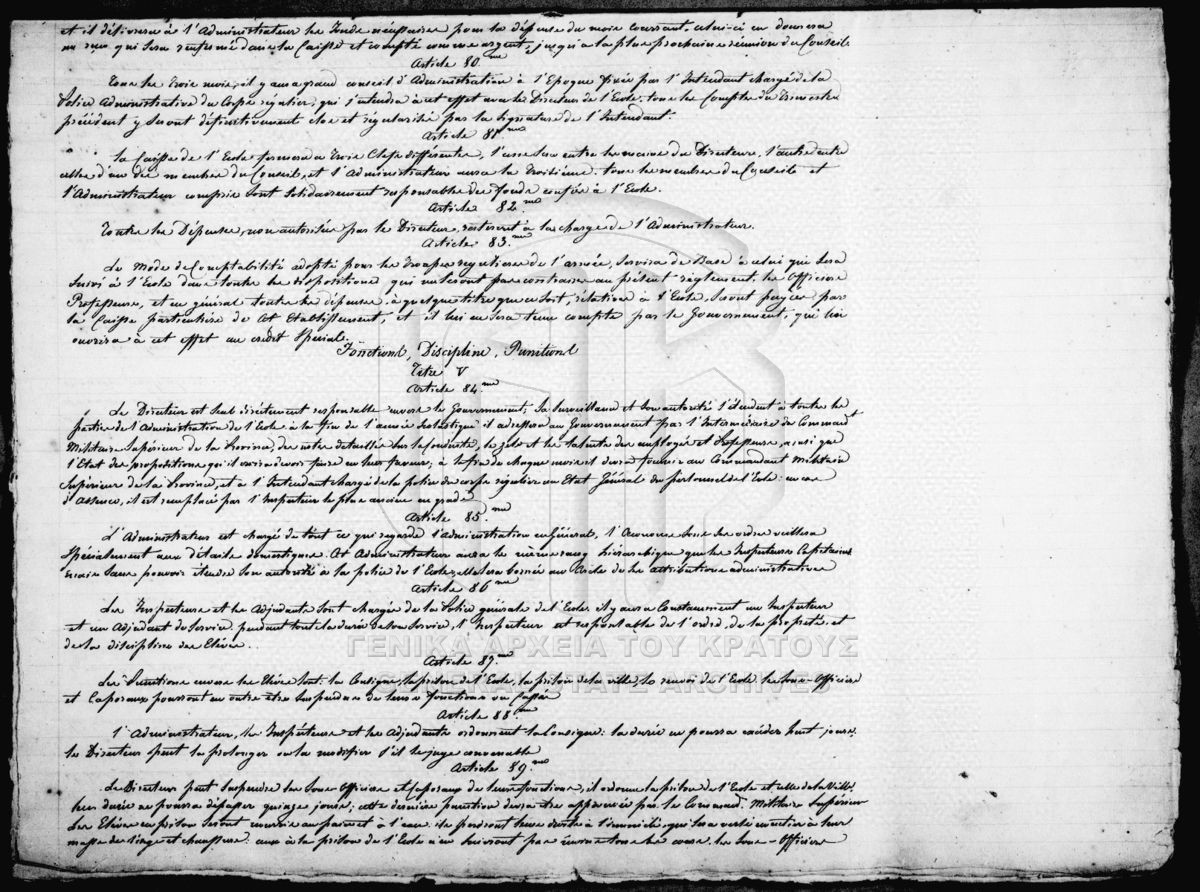 et il délivrera à l'Administrateur les fonds nécessaires pour la dépense du mois courant, celui-ci en donnera
un reçu qui sera renfermé dans la Caisse et compté comme argent, jusqu'à la plus prochaine réunion du Conseil
Article 80.me
Tous les trois mois, il y aura grand conseil d'Administration à l'Epoque fixée par l'Intendant chargé de la
Police Administrative du Corps régulier, qui s'entendra à cet effet avec le Directeur de l'Ecole, tous les Comptes du Trimestre
précédent y seront définitivement clos et régularisés par la signature de l'Intendant
Article 81.me
La Caisse de l'Ecole fermera à trois Clefs différentes, l'une sera entre les mains du Directeur, l'autre entre
celles d'un des membres du Conseil, et l'Administrateur aura la troisième. tous les membres du Conseil et
l'Administrateur compris sont solidairement responsables des fonds confiés à l'Ecole.
Article 82.me
Toutes les Dépenses, non autorisées par le Directeur, resteront à la charge de l'Administrateur.
Article 83.me
Le Mode de Comptabilité adopté pour les Troupes régulières de l'armée, servira de Base à celui qui sera
suivi à l'Ecole dans toutes les dispositions qui ne seront pas contraires au présent règlement. les Officiers
Professeurs, et en général toutes les dépenses, à quelque titre que ce soit, relatives à l'Ecole, seront payées par
la Caisse particulière de Cet Etablissement, et il lui en sera tenu compte par le Gouvernement, qui lui
ouvrira à cet effet un crédit Spécial.
Fonctions, Discipline, Punitions
Titre V
Article 84.me
Le Directeur est seul directement responsable envers le Gouvernement; sa surveillance et son autorité s'étendent à toutes les
parties de l'Administration de l'Ecole à la fin de l'année scholastique il adressera au Gouvernement par l'Intermédiaire du Command.t
Militaire Supérieur de la Province, des notes détaillées sur la conduite, le zèle et les talents des employés et Professeurs, ainsi que
l'Etat des propositions qu'il croira devoir faire en leur faveur; à la fin de chaque mois il devra fournir au Commandant Militaire
Supérieur de la Province, et à l'Intendant chargé de la police du corps régulier un Etat Général du personnel de l'Ecole: en cas
d'Absence, il est remplacé par l'Inspecteur le plus ancien en grade
Article 85.me
L'Administrateur est chargé de tout ce qui regarde l'administration en Général, l'Oeconome sous ses ordres veillera
spécialement aux détails domestiques. Cet Administrateur aura le même rang hiérarchique que les Inspecteurs Capitaines
mais sans pouvoir étendre son autorité à la police de l'Ecole, elle sera bornée au Cercle de ses attributions administratives
Article 86.me
Les Inspecteurs et les Adjudants sont chargés de la Police générale de l'Ecole, il y aura Constamment un Inspecteur
et un Adjudant de Service. pendant toute la durée de son Service, l'Inspecteur est responsable de l'ordre, de la propreté et
de la discipline des Elèves.
Article 87.me
Les Punitions envers les Elèves sont la Consigne, la prison de l'Ecole, la prison de la ville, le renvoi de l'Ecole. les Sous-Officiers
et Caporaux pourront en outre être suspendus de leurs fonctions ou Cassés
Article 88.me
L'Administrateur, les Inspecteurs et les Adjudants ordonnent la Consigne: la durée ne pourra excéder huit jours.
le Directeur peut la prolonger ou la modifier s'il le juge convenable
Article 89.me
Le Directeur peut suspendre les Sous-Officiers et Caporaux de leurs fonctions, il ordonne la prison de l'Ecole et celle de la Ville.
leur durée ne pourra dépasser quinze jours; cette dernière punition devra être approuvée par le Command. Militaire Supérieur
Les Elèves en prison seront au pain et à l'eau. ils perdront leurs droits à qui sera versé à leur
masse de linge et chaussure. ceux à la prison de l'Ecole n'en suivront pas moins tous les cours. les Sous-Officiers
ΓΕΝΙΚΑ ΑΡΧΕΙΑ ΤΟΥ ΚΡΑΤΟΥΣ
GENERAL STATE ARCHIVES